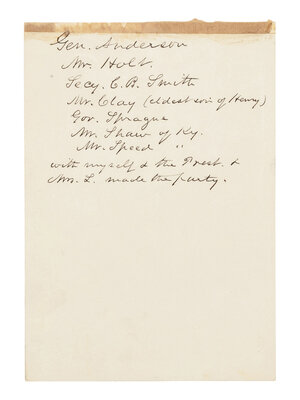 Gen. Anderson
Mr. Holt.
Secy. C. B. Smith
Mr. Clay (oldest son of Henry)
Gov. Sprague
Mr. Shaw of Ky.
Mr. Speed "
with myself & the Prest. &
Mrs. L. made the party.